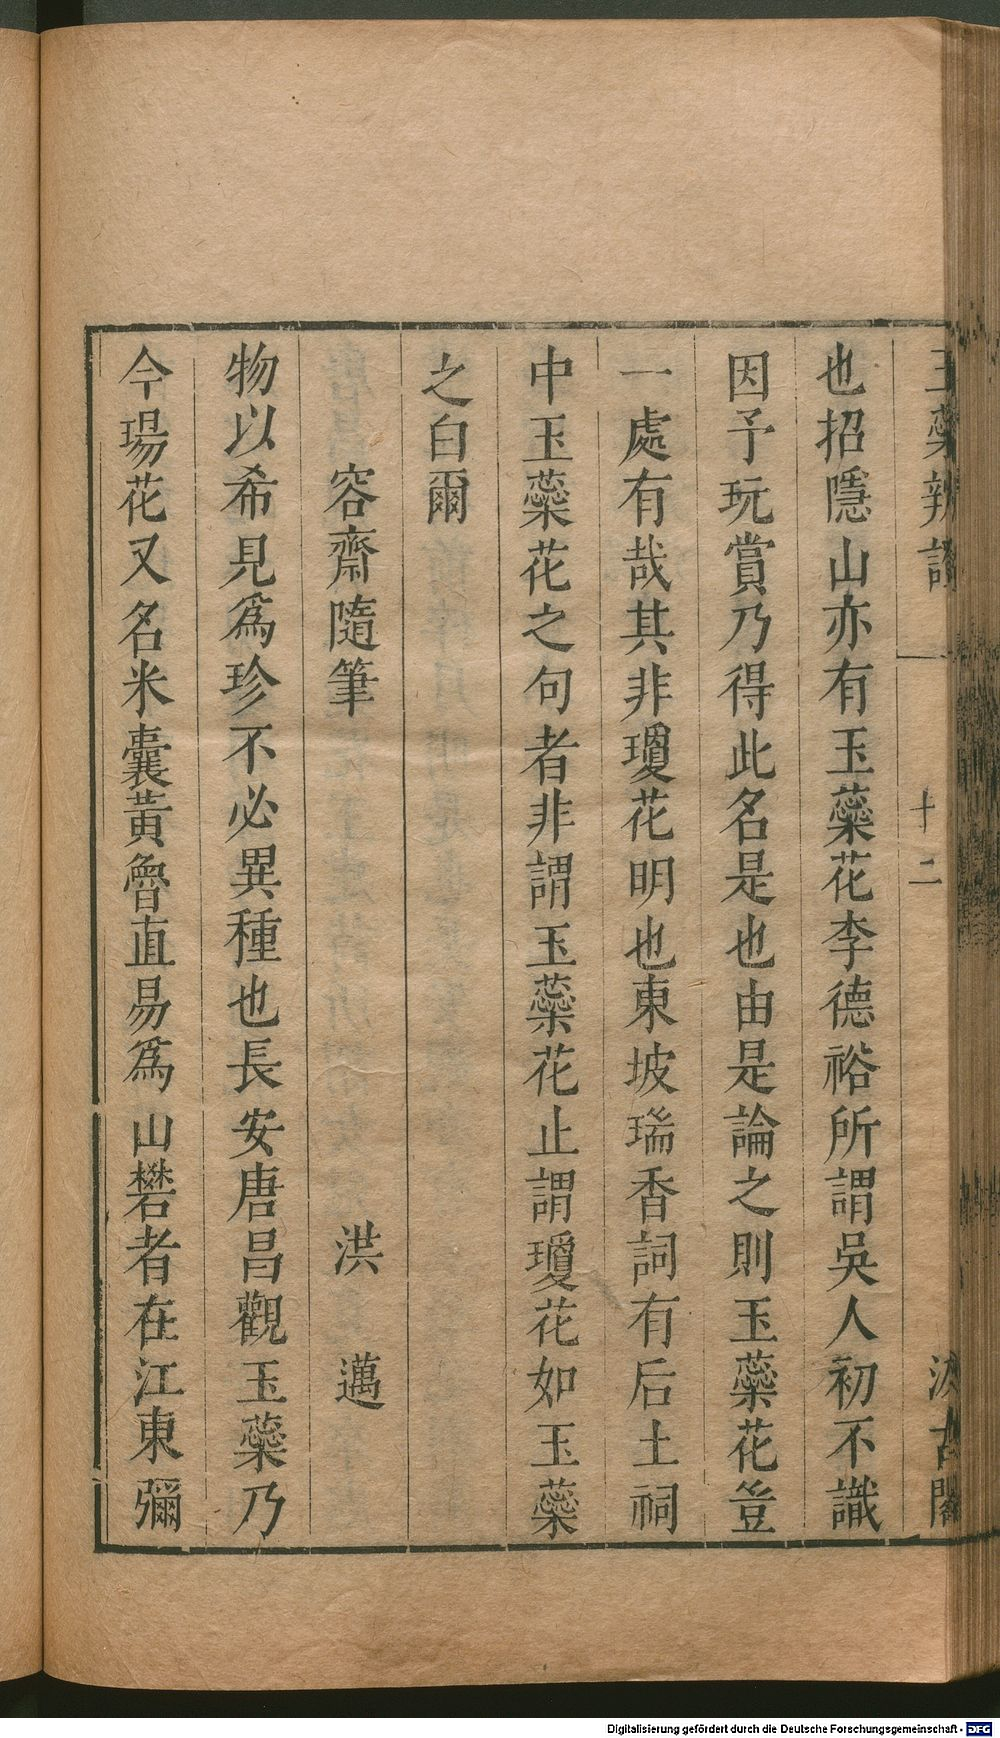 玉蘂辨證
十二
汲古閣
也招隱山亦有玉蘂花李德裕所謂吳人初不識
因予玩賞乃得此名是也由是論之則玉蘂花豈
一處有哉其非瓊花明也東坡瑞香詞有后土祠
中玉蘂花之句者非謂玉蘂花止謂瓊花如玉蘂
之白爾
容齋隨筆 洪邁
物以希見為珍不必異種也長安唐昌觀玉蘂乃
今瑒花又名米囊黃魯直易為山礬者在江東彌
Digitalisierung gefördert durch die Deutsche Forschungsgemeinschaft - DFG